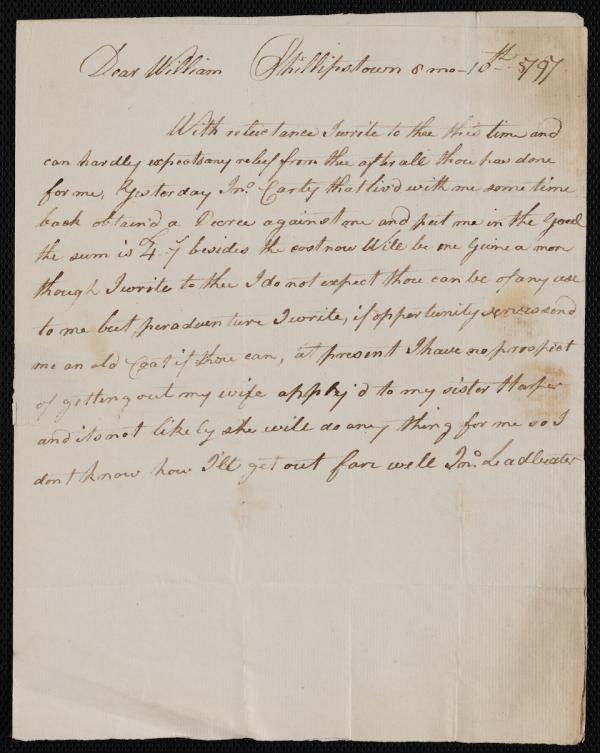 Dear William Phillipstown 8 mo - 10th 1797
With reluctance I write to thee this time and
can hardly expects any relief from thee after all thou has done
for me, Yesterday Jno. Carty that liv'd with me some time
back obtain'd a Decree against me and put me in the Goal
the sum is £4..7 besides the cost now Will be one Guinea more
though I write to thee I do not expect thou can be of any use
to me but peradventure I write, if opportunity serves send
me an old Coat if thou can, at present I have no prospect
of getting out my wife apply'd to my sister Harper
and its not likely she will do any thing for me so I
dont know how I'll get out fare well Jno. Leadbeater